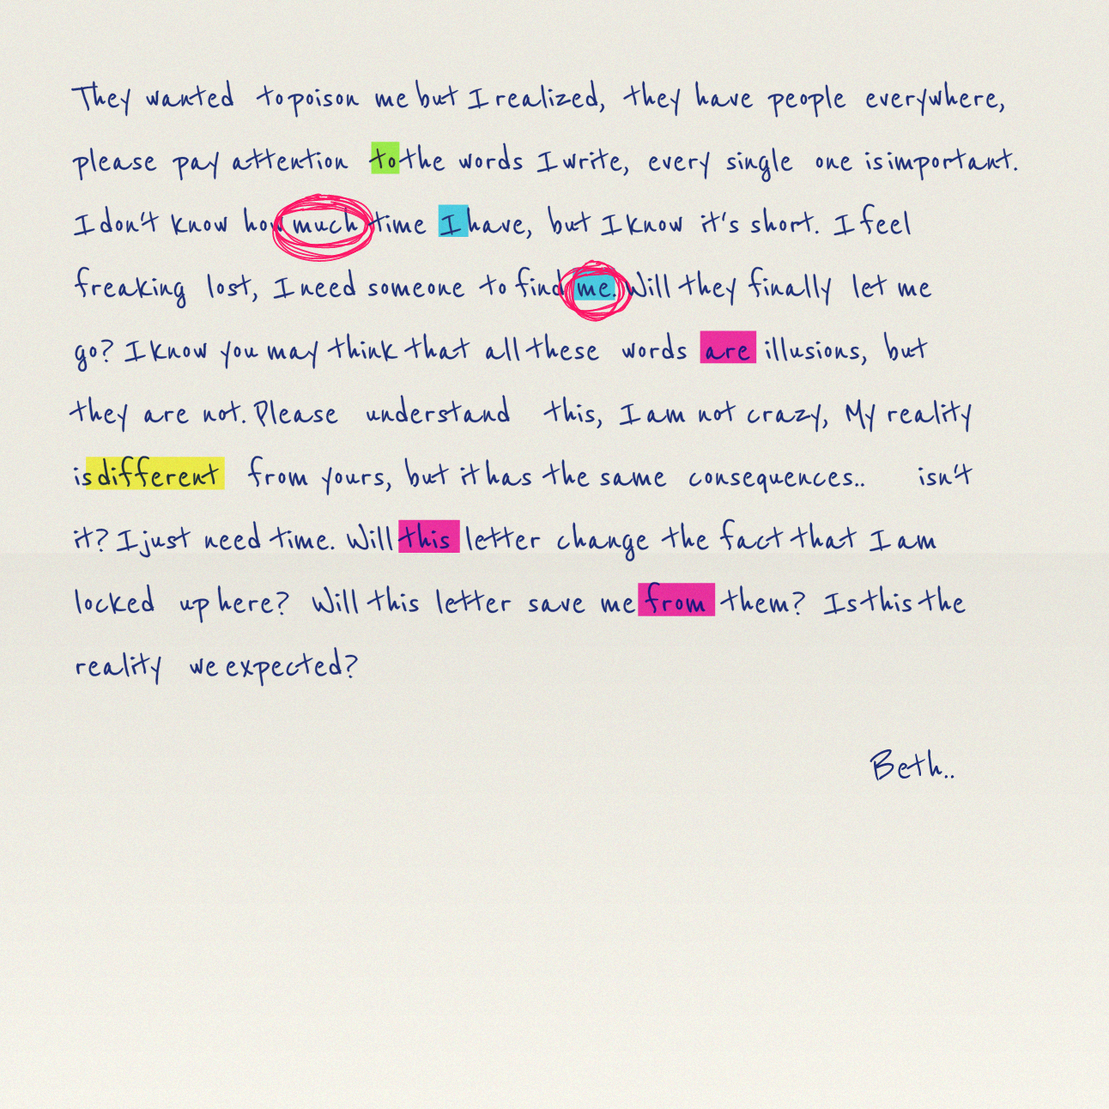 They wanted to poison me but I realized, they have people everywhere,
please pay attention to the words I write, every single one is important.
I don't know how much time I have, but I know it's short. I feel
freaking lost, I need someone to find me. Will they finally let me
go? I know you may think that all these words are illusions, but
they are not. Please understand this, I am not crazy, My reality
is different from yours, but it has the same consequences.. isn't
it? I just need time. Will this letter change the fact that I am
locked up here? Will this letter save me from them? Is this the
reality we expected?
Beth..